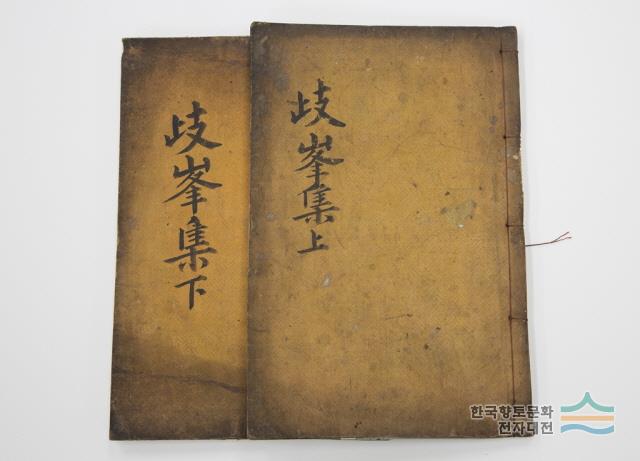 歧峯集上
歧峯集下
한국향토문화
전자대전